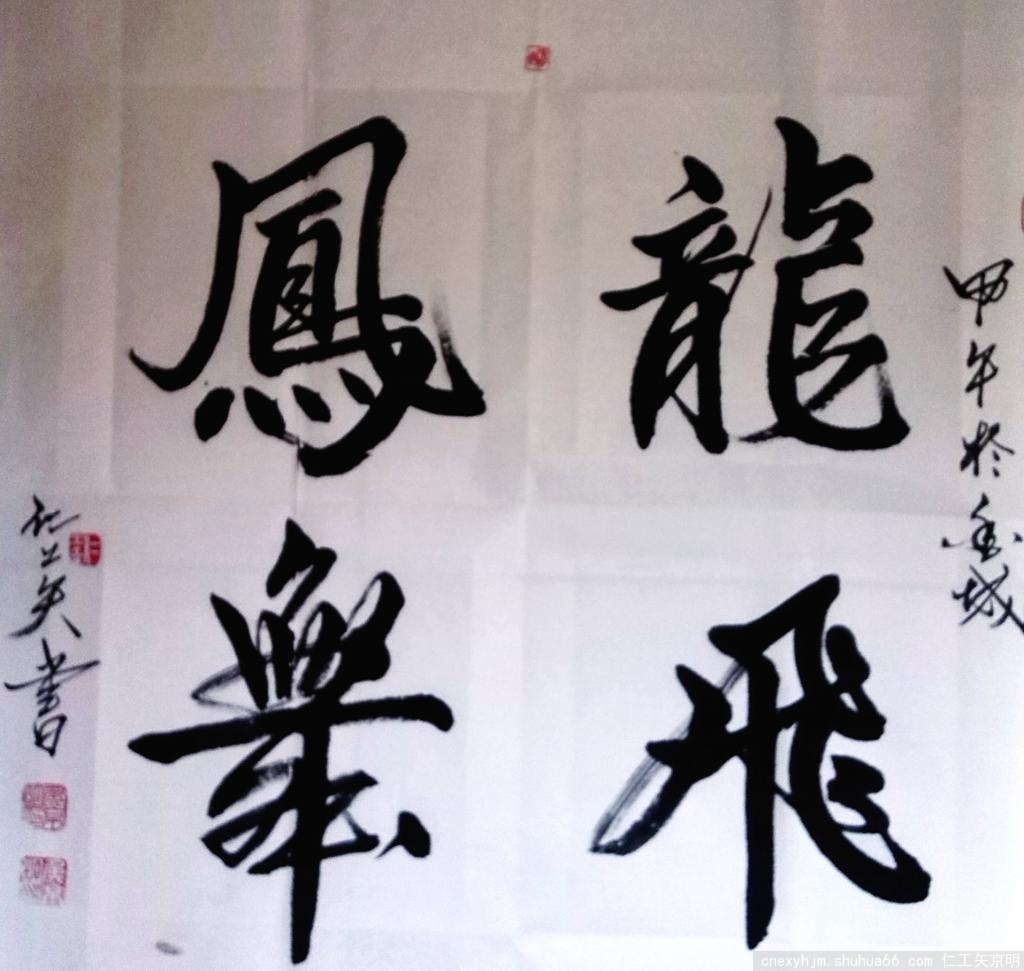 甲午於金城
龍飛
鳳舞
仁工矢書
cnexyhjm.shuhua66.com 仁工矢京明